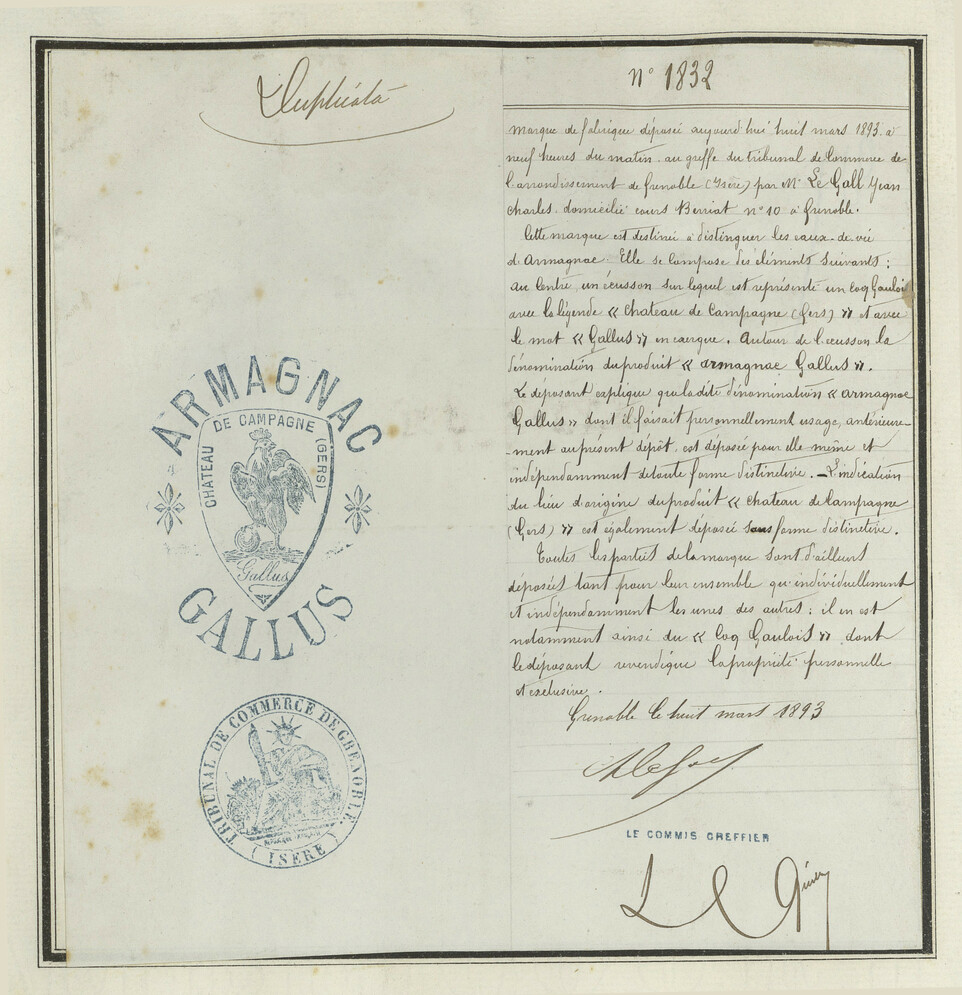 Duplicata
ARMAGNAC
CHATEAU DE CAMPAGNE (GERS)
Gallus
GALLUS
TRIBUNAL DE COMMERCE DE GRENOBLE.
(ISERE)
N° 1832
Marque de fabrique déposée aujourd'hui huit mars 1893 à
neuf heures du matin au greffe du tribunal de Commerce de
l'arrondissement de Grenoble (Isère) par Mr Le Gall Jean
Charles domicilié cours Berriat n° 10 à Grenoble.
Cette marque est destinée à distinguer les eaux-de-vie
d'Armagnac. Elle se compose des éléments suivants :
au Centre, un écusson sur lequel est représenté un Coq Gaulois
avec la légende « Chateau de Campagne (Gers) » et avec
le mot « Gallus » en exergue. Autour de l'écusson la
dénomination du produit « armagnac Gallus ».
Le déposant explique que ladite dénomination « armagnac
Gallus » dont il faisait personnellement usage, antérieure-
ment au présent dépôt, est déposée pour elle même et
indépendamment de toute forme distinctive. – L'indication
du lieu d'origine du produit « Chateau de Campagne
(Gers) » est également déposée sans forme distinctive.
Toutes les parties de la marque sont d'ailleurs
déposées tant pour leur ensemble qu'individuellement
et indépendamment les unes des autres ; il en est
notamment ainsi du « Coq Gaulois » dont
le déposant revendique la propriété personnelle
et exclusive.
Grenoble le huit mars 1893
LE COMMIS GREFFIER